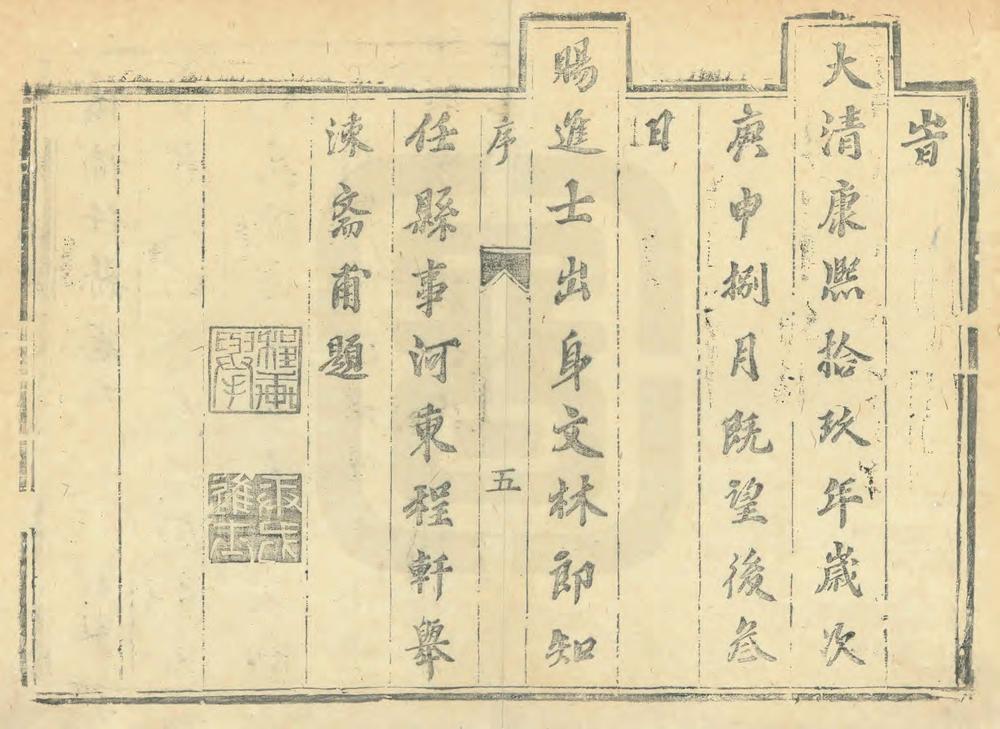 旹
大清康熙拾玖年歲次
庚申捌月旣望後叁
日
賜進士出身文林郎知
序
五
任縣事河東程軒舉
涑齋甫題
程軒舉字
丙戌進士